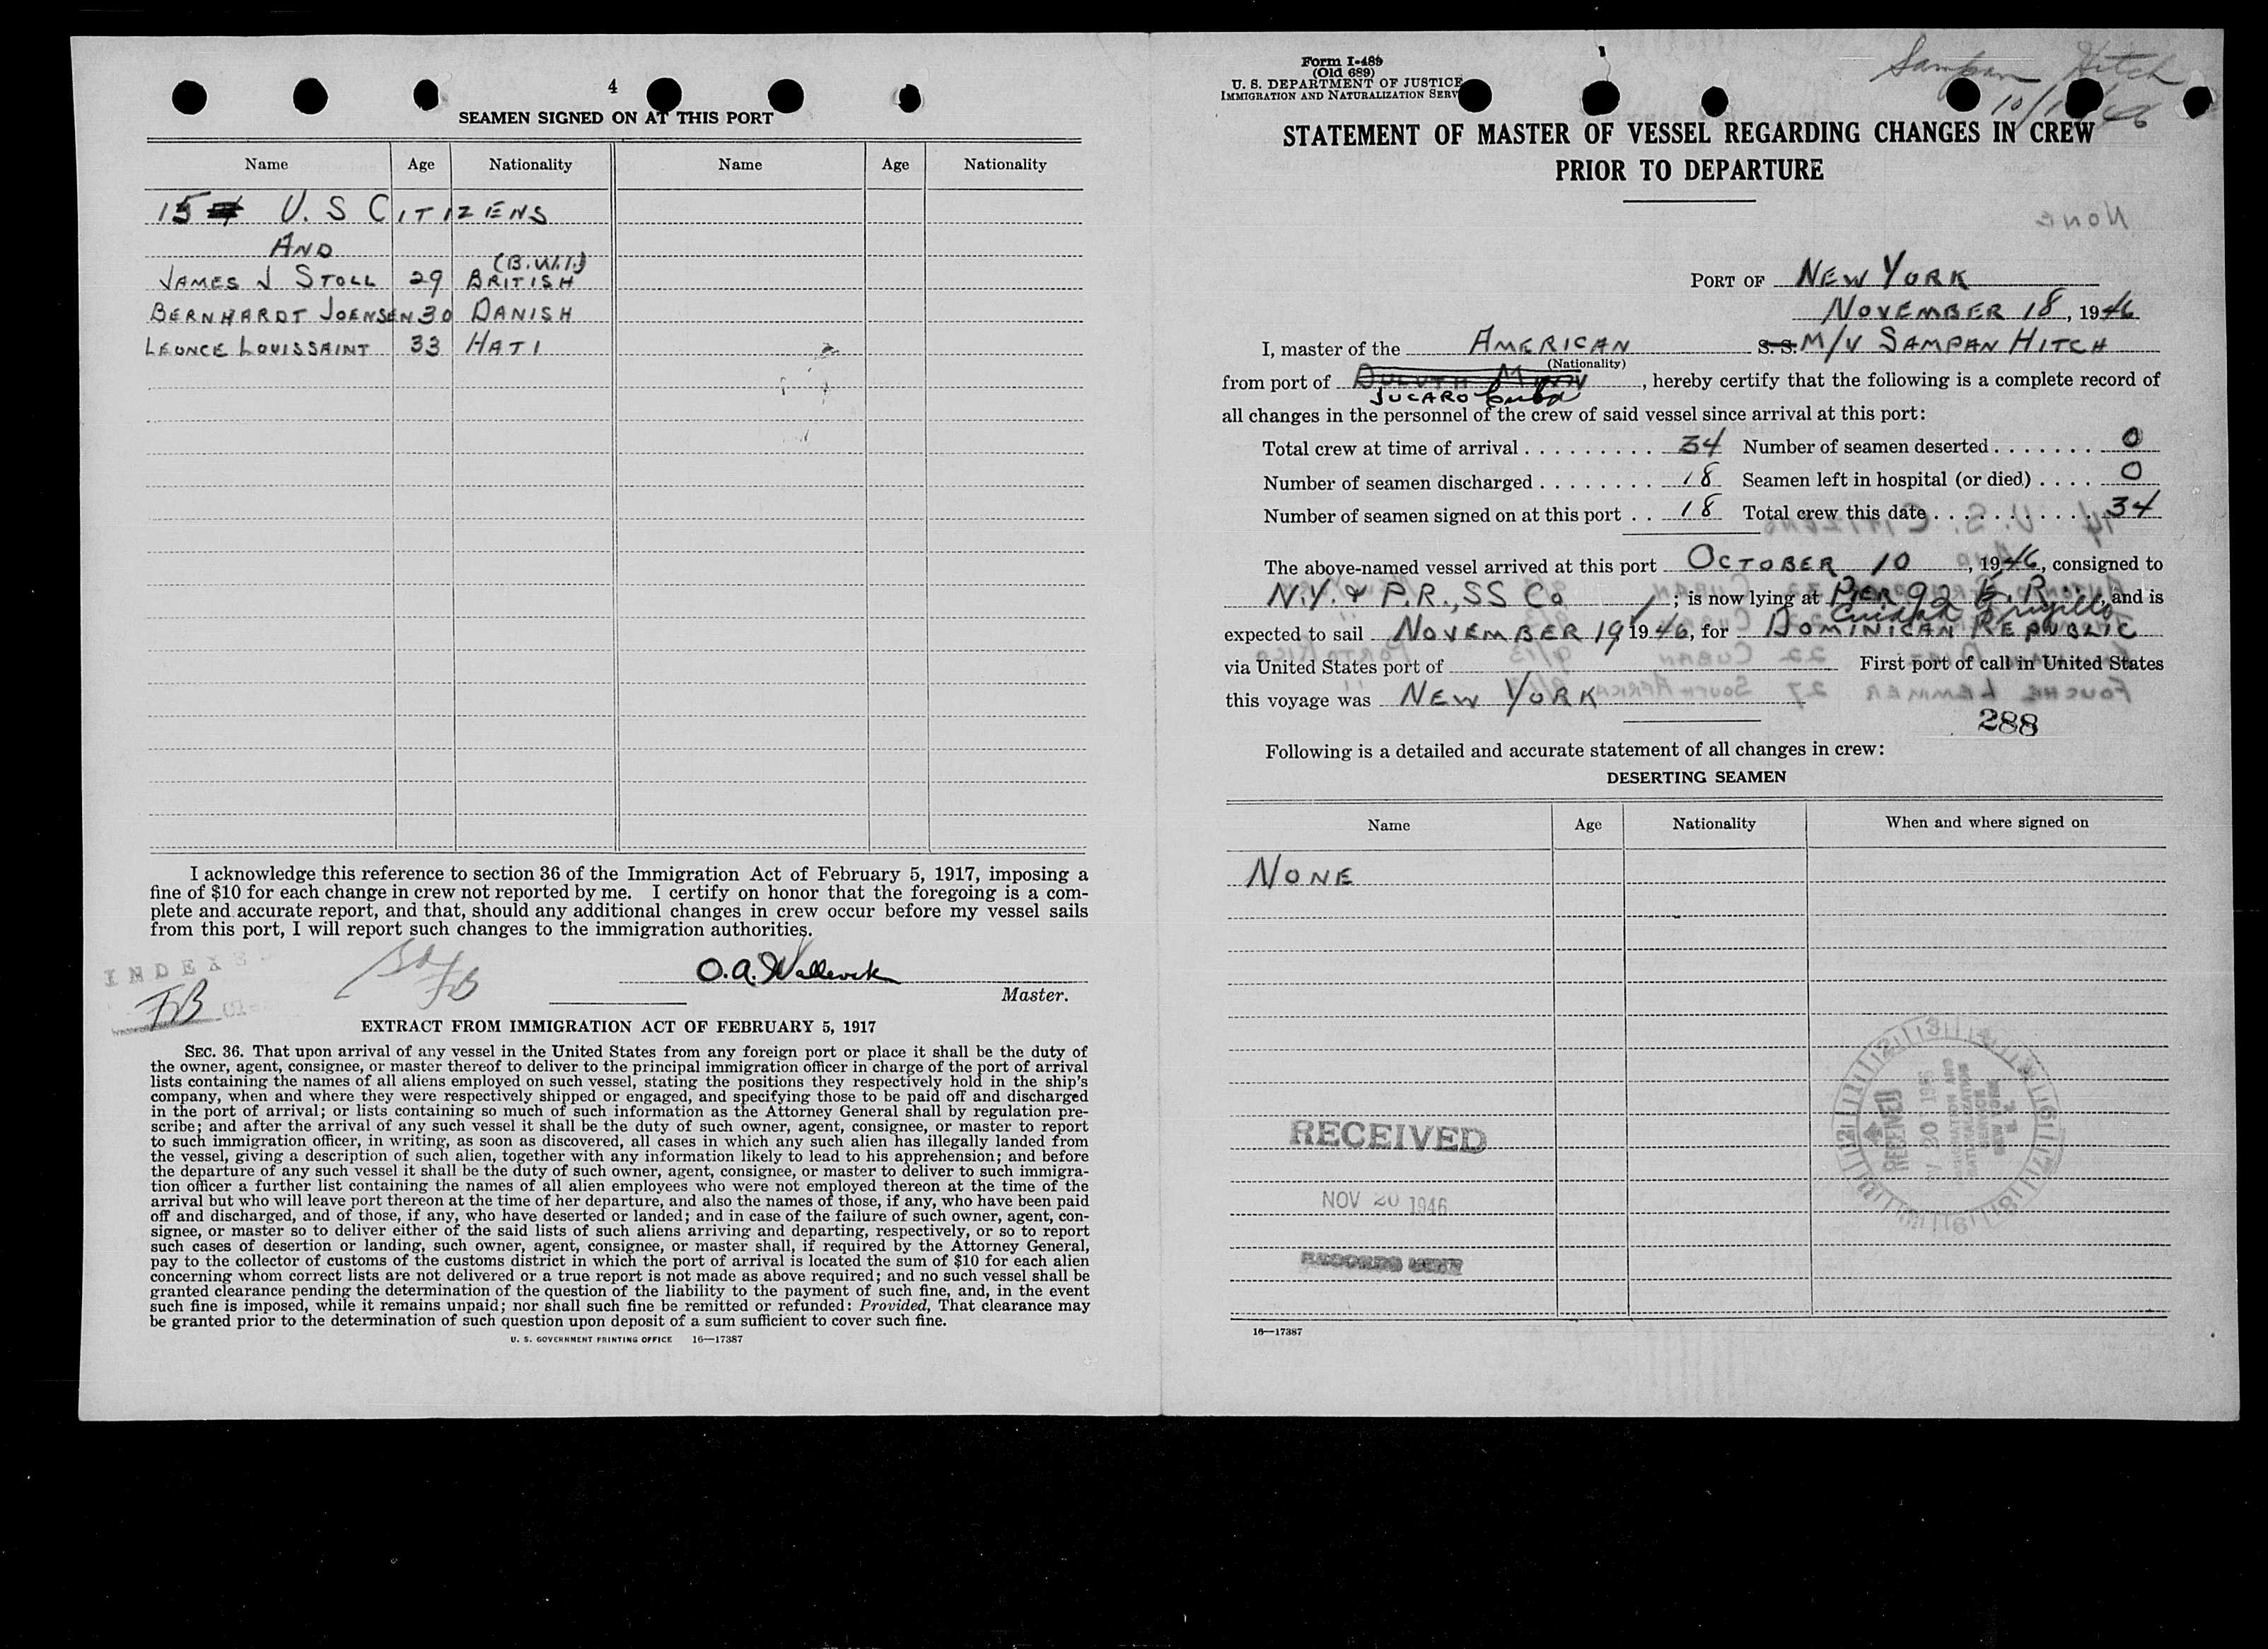 4
SEAMEN SIGNED ON AT THIS PORT
Name Age Nationality Name Age Nationality
15 U. S CITIZENS
AND
(B.W.I.)
JAMES J STOLL 29 BRITISH
BERNHARDT JOENSEN 30 DANISH
LEONCE LOUISSAINT 33 HATI
I acknowledge this reference to section 36 of the Immigration Act of February 5, 1917, imposing a
fine of $10 for each change in crew not reported by me. I certify on honor that the foregoing is a com-
plete and accurate report, and that, should any additional changes in crew occur before my vessel sails
from this port, I will report such changes to the immigration authorities.
INDEXE
FB
FB
O.A. Wallevik
Master.
EXTRACT FROM IMMIGRATION ACT OF FEBRUARY 5, 1917
SEC. 36. That upon arrival of any vessel in the United States from any foreign port or place it shall be the duty of
the owner, agent, consignee, or master thereof to deliver to the principal immigration officer in charge of the port of arrival
lists containing the names of all aliens employed on such vessel, stating the positions they respectively hold in the ship's
company, when and where they were respectively shipped or engaged, and specifying those to be paid off and discharged
in the port of arrival; or lists containing so much of such information as the Attorney General shall by regulation pre-
scribe; and after the arrival of any such vessel it shall be the duty of such owner, agent, consignee, or master to report
to such immigration officer, in writing, as soon as discovered, all cases in which any such alien has illegally landed from
the vessel, giving a description of such alien, together with any information likely to lead to his apprehension; and before
the departure of any such vessel it shall be the duty of such owner, agent, consignee, or master to deliver to such immigra-
tion officer a further list containing the names of all alien employees who were not employed thereon at the time of the
arrival but who will leave port thereon at the time of her departure, and also the names of those, if any, who have been paid
off and discharged, and of those, if any, who have deserted or landed; and in case of the failure of such owner, agent, con-
signee, or master so to deliver either of the said lists of such aliens arriving and departing, respectively, or so to report
such cases of desertion or landing, such owner, agent, consignee, or master shall, if required by the Attorney General,
pay to the collector of customs of the customs district in which the port of arrival is located the sum of $10 for each alien
concerning whom correct lists are not delivered or a true report is not made as above required; and no such vessel shall be
granted clearance pending the determination of the question of the liability to the payment of such fine, and, in the event
such fine is imposed, while it remains unpaid; nor shall such fine be remitted or refunded: Provided, That clearance may
be granted prior to the determination of such question upon deposit of a sum sufficient to cover such fine.
U. S. GOVERNMENT PRINTING OFFICE 16—17387
Form I-489
(Old 689)
U. S. DEPARTMENT OF JUSTICE
IMMIGRATION AND NATURALIZATION SERV
Sampan Hitch
STATEMENT OF MASTER OF VESSEL REGARDING CHANGES IN CREW
PRIOR TO DEPARTURE
PORT OF NEW YORK
NOVEMBER 18, 1946
I, master of the AMERICAN S. S. M/V SAMPAN HITCH
(Nationality)
from port of DULUTH MINN, hereby certify that the following is a complete record of
JUCARO Cuba
all changes in the personnel of the crew of said vessel since arrival at this port:
Total crew at time of arrival 34 Number of seamen deserted 0
Number of seamen discharged 18 Seamen left in hospital (or died) 0
Number of seamen signed on at this port 18 Total crew this date 34
The above-named vessel arrived at this port OCTOBER 10, 1946, consigned to
N.Y. & P.R., SS Co; is now lying at PIER 9A E. R., and is
Cuidad Trujillo
expected to sail NOVEMBER 19 1946, for DOMINICAN REPUBLIC
via United States port of First port of call in United States
this voyage was NEW YORK
288
Following is a detailed and accurate statement of all changes in crew:
DESERTING SEAMEN
Name Age Nationality When and where signed on
NONE
RECEIVED
NOV 20 1946
RECORDS UNIT
RECEIVED
20 1946
IMMIGRATION AND
NATURALIZATION
SERVICE
NEW YORK
N. Y.
16—17387